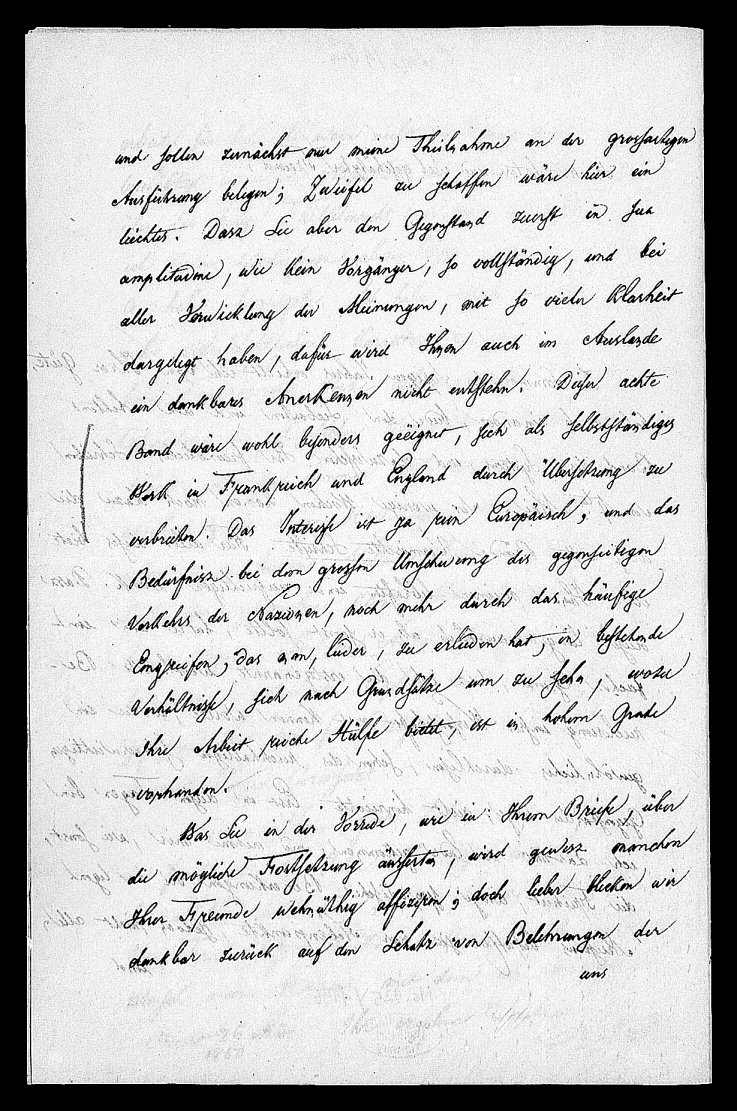 und sollen zunächst nur meine Theilnahme an der grossartigen
Ausführung belegen; Zweifel zu schaffen wäre hier ein
leichtes. Dasz Sie aber den Gegenstand zuerst in sua
amplitudine, wie kein Vorgänger, so vollständig, und bei
aller Verwicklung der Meinungen, mit so vieler Klarheit
dargelegt haben, dafür wird Ihnen auch im Auslande
ein dankbares Anerkennen nicht entstehn. Dieser achte
Band wäre wohl besonders geeignet, sich als selbstständiges
Werk in Frankreich und England durch Übersetzung zu
verbreiten. Das Interesse ist ja rein Europäisch, und das
Bedürfnisz bei dem grossen Umschwung des gegenseitigen
Verkehrs der Nazionen, noch mehr durch das häufige
Eingreifen, das man, leider, zu erleiden hat, in bestehende
Verhältnisse, sich nach Grundsätze um zu sehn, wozu
Ihre Arbeit reiche Hülfe bietet, ist in hohem Grade
vorhanden.
Was Sie in der Vorrede, wie in Ihrem Briefe, über
die mögliche Fortsetzung äusserten, wird gewisz manchen
Ihrer Freunde wehmüthig affiziren; doch lieber blicken wir
dankbar zurück auf den Schatz von Belehrungen der
uns